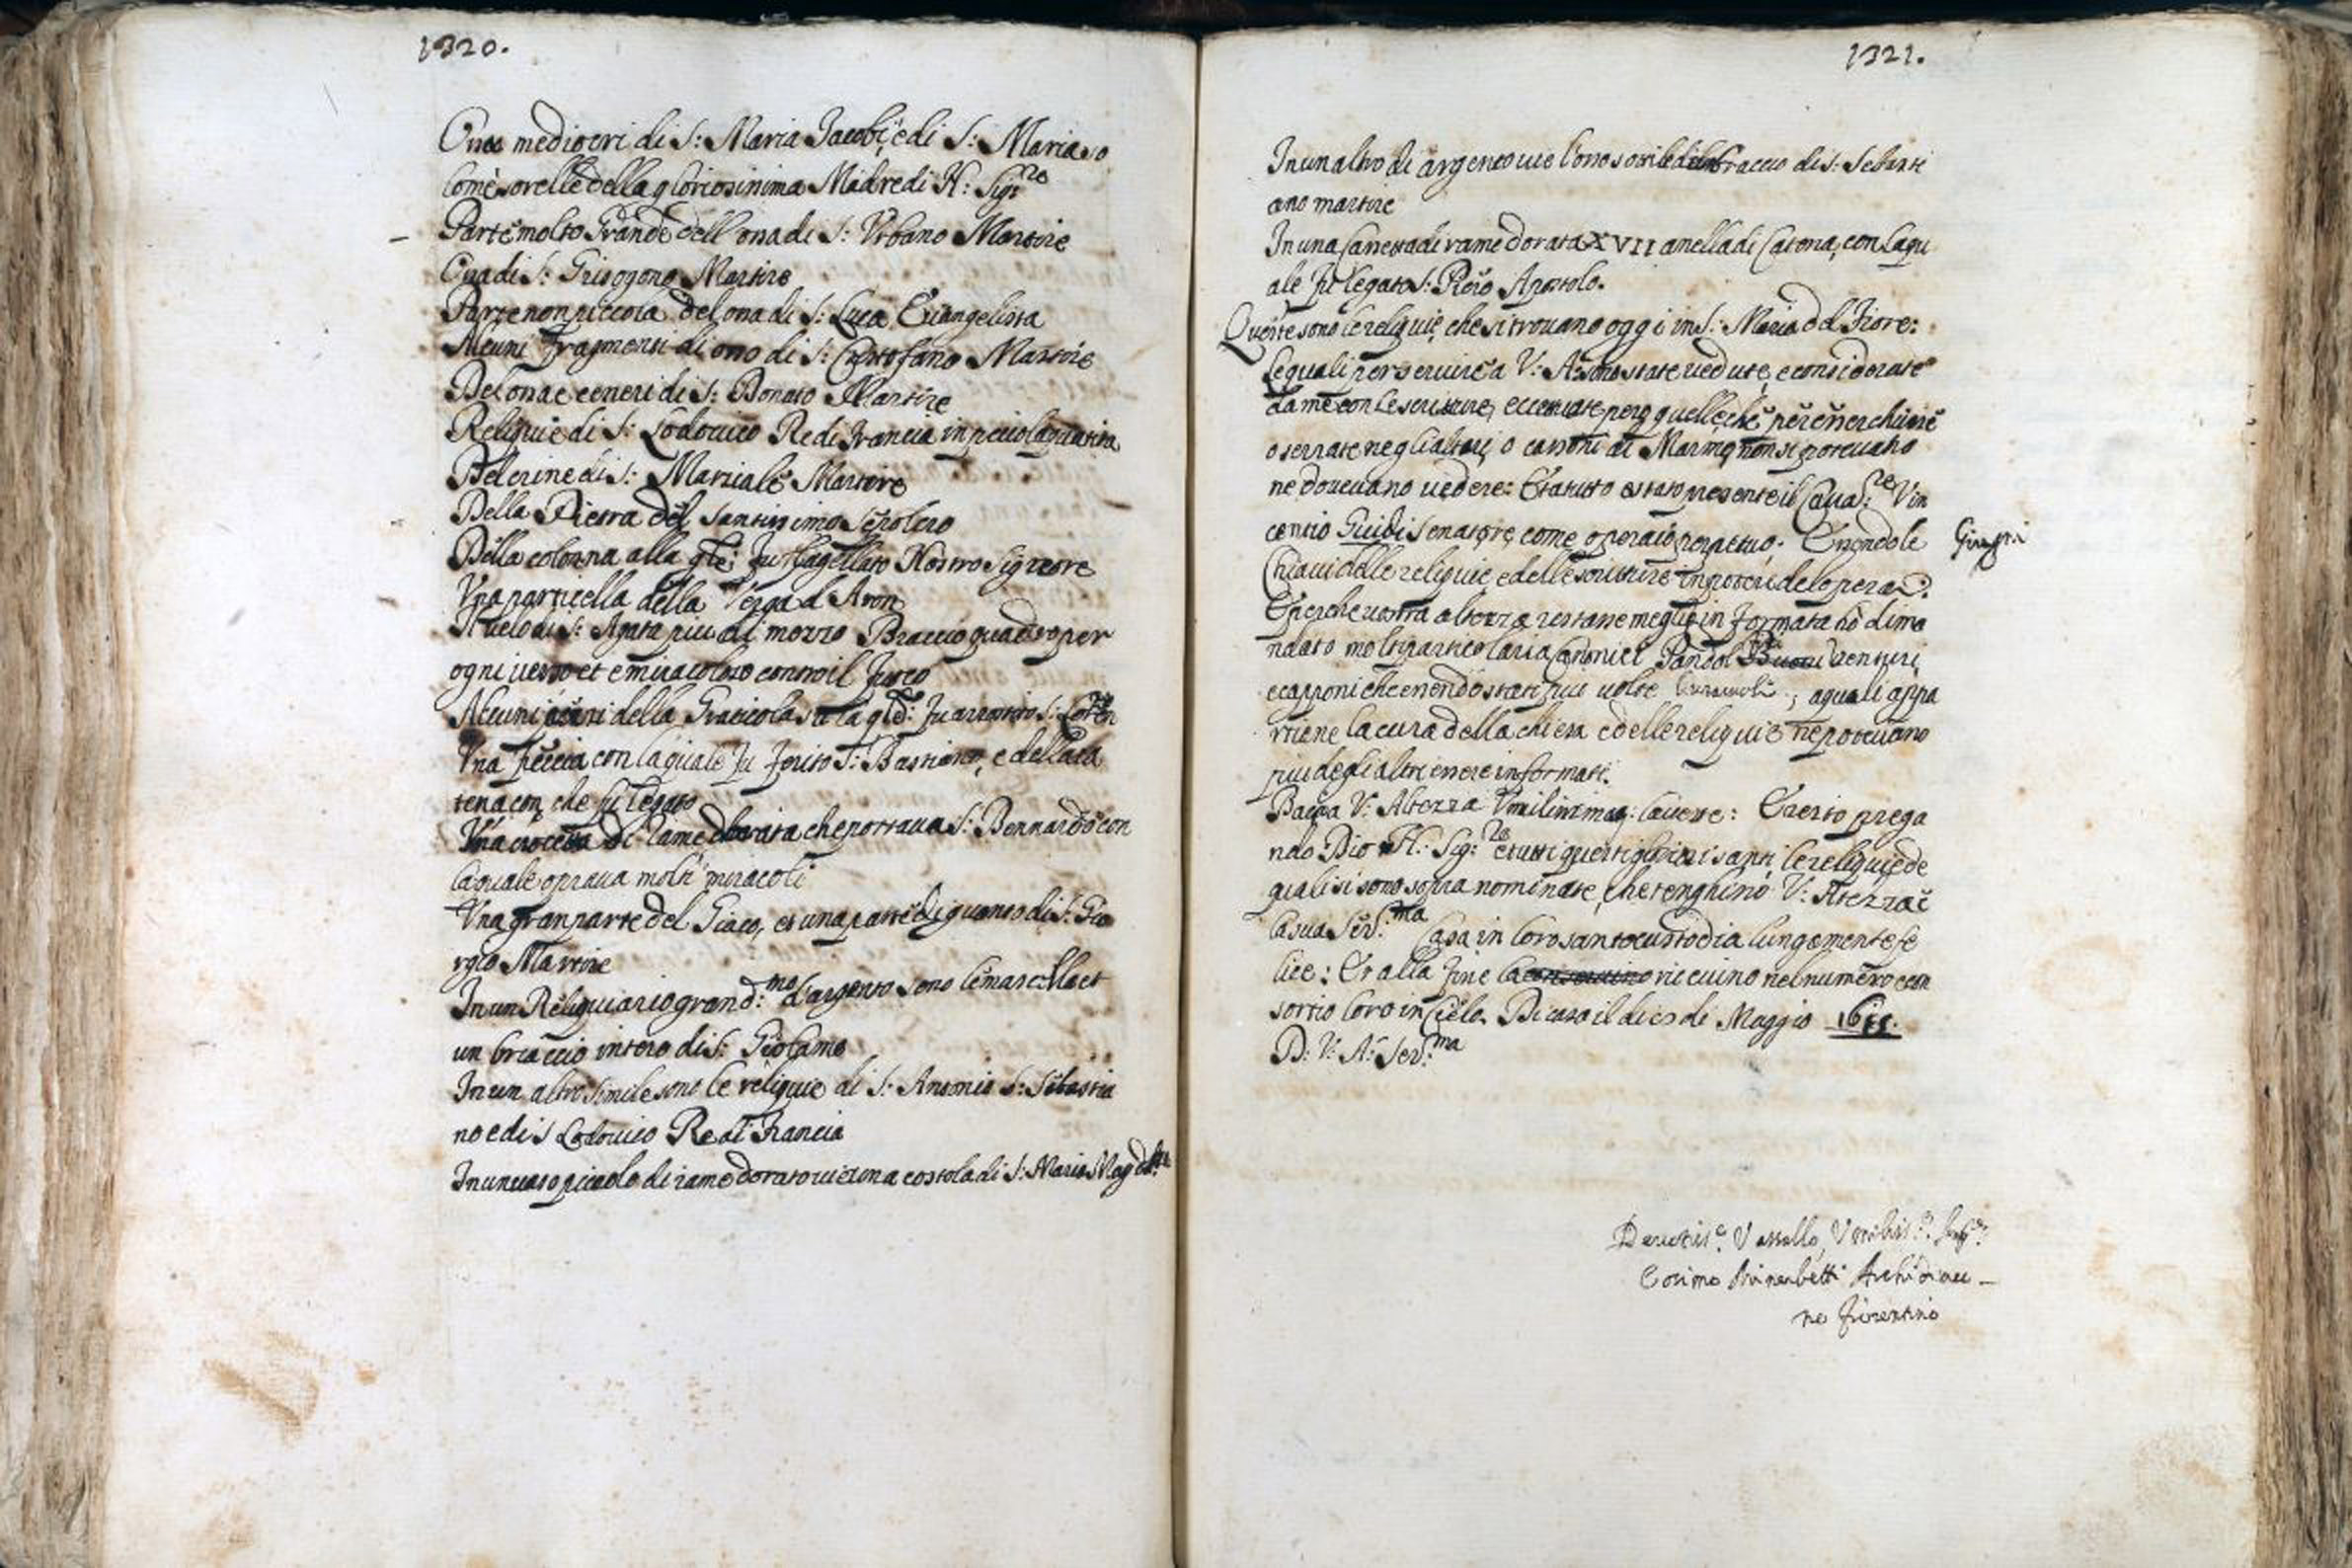 1320.
Ossa mediocri di S: Maria Jacobi, e di S: Maria so
lome sorelle della gloriosissima Madre di N: Sig:re
Parte molto Grande dell ossa di S: Vrbano Martire
Ossa di S: Grisogono Martire
Parte non piccola del ossa di S: Luca Euangelista
Alcuni fragmenti di osso di S: Cristofano Martire
Del ossa e ceneri di S: Donato Martire
Reliquie di S: Lodouico Re di Francia in picciola quantita
Del crine di S: Marziale Martire
Della Pietra del santissimo sepolcro
Della colonna alla qle: fu flagellato Nostro Signore
Vna particella della Verga d Aron
Il velo di S: Agata piu di mezzo Braccio quadro per
ogni uerso et e miracoloso contro il fuoco
Alcuni della Graticola su la qle: fu arrostito S: Loren
Vna freccia con la quale fu ferito S: Bastiano, e della ca
tena con, che fu legato
Vna crocetta di Rame dorata che portaua S: Bernardo con
la quale opraua molti miracoli
Vna gran parte del Giaco, et una parte di guanto di S: Gio
rgio Martire
In un Reliquiario grand:mo d'argento sono le mascella et
un braccio intero di S: Girolamo
In un altro simile sono le reliquie di S: Antonio S: Sebastia
no e di S Lodouico Re di Francia
In un uaso piccolo di rame dorato ui e una costola di S: Maria Magdal:
1321.
In un altro di argento ui e l'osso sotile del braccio di S: Sebasti
ano martire
In una Cassetta di rame dorata XVII anella di Catena, con la qu
ale fu legato S: Piero Apostolo.
Queste sono le reliquie, che si trouano oggi in S: Maria del Fiore:
le quali per seruire a V: A: sono state uedute, e considerate
da me con le scritture, eccettuate pero quelle, che per esser chiuse
o serrate negli altari, o cassoni di Marmo, non si poteuano
ne doueuano uedere: Et a tutto e stato presente il Caua:re Vin
centio Guidi Senatore, come operaio perpetuo. Essendo le
Giugni
Chiaui delle reliquie, e delle scritture in poter del opera.
E perche uostra altezza restasse meglio in formata ho dima
ndato molti particolari a Canonici Pandol Buon denturi
e capponi che essendo stati piu uolte ; a quali appa
rtiene la cura della chiesa e delle reliquie ne poteuano
piu degli altri essere informati.
Bacia V: Altezza Vmilissimam: la ueste: E resto prega
ndo Dio N: Sig:re e tutti questi gloriosi santi, le reliquie de
quali si sono sopra nominate, che tenghino V: Altezza e
la sua Ser:ma Casa in loro santa custodia lungamente fe
lice: Et alla fine la conseruino riceuino nel numero e con
sortio loro in Cielo. Di casa il di di Maggio 1615.
D: V: A: Ser:ma
Deuotis:o Vassallo,
Cosimo Minerbetti Archidiaco –
no fiorentino